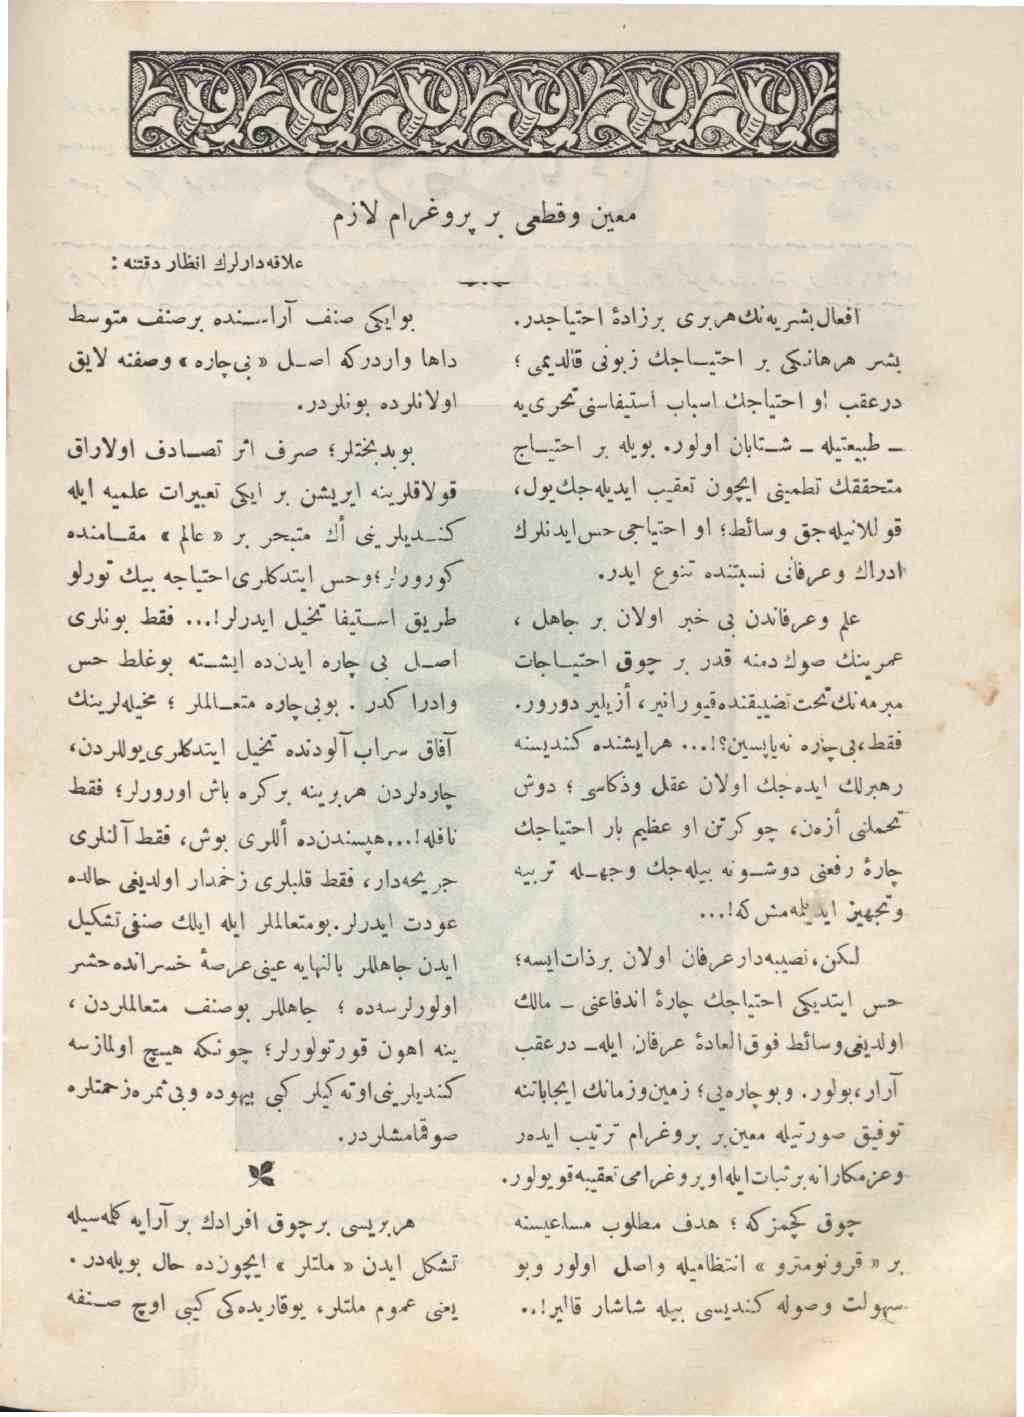 معین و قطعی بر پروغرام لازم
علاقه‌دارلرك انظار دقتنه :
افعال بشریه‌نك هر بری بر زادهٔ احتیاجدر.
بشر هر هانكی بر احتیــاجك زبونی قالدیمی ؛
درعقب او احتیاجك اسباب استیفاسنی تحری‌یه
ـ طبیعتیله ـ شــتابان اولور. بویله بر احتیــاج
متحققك تطمینی ایچون تعقیب ایدیله‌جك یول،
قوللانیله‌جق وسائط؛ او احتیاجی حس ایدنلرك
ادراك وعرفانی نسبتنده تنوع ایدر.
علم وعرفاندن بی خبر اولان بر جاهل ،
عمرینك صوك دمنه قدر بر چوق احتیــاجات
مبرمه‌نك تحت تضییقنده قیورانیر، أزیلیر دورور.
فقط، بی‌چاره نه‌یاپسین؟!... هرایشنده كندیسنه
رهبرلك ایده‌جك اولان عقل وذكاسی ؛ دوش
تحملنی أزه‌ن، چوكرتن او عظیم بار احتیاجك
چارهٔ رفعنی دوشــونه بیله‌جك وجهــله تربیه
وتجهیز ایدیلمه‌مش كه!...
لـكن، نصیبه‌دار عرفان اولان بر ذات ایسه؛
حس ایتدیكی احتیاجك چارهٔ اندفاعنی ـ مالك
اولدیغی وسائط فوق‌العادهٔ عرفان ایله‌ـ درعقب
آرار، بولور. وبو چاره‌یی؛ زمین وزمانك ایجاباتنه
توفیق صورتیله معین بر پروغرام ترتیب ایده‌ر
وعزمكارانه بر ثبات ایله او پروغرامی تعقیبه قویولور.
چوق كچمز كه ؛ هدف مطلوب مساعیسنه
بر « قرونومترو » انتظامیله واصل اولور وبو
سهولت وصوله كندیسی بیله شاشار قالیر!..
بو ایكی صنف آراســنده بر صنف متوسط
داها واردر كه اصــل « بی‌چاره » وصفنه لایق
اولانلرده بونلردر.
بو بدبختلر؛ صرف اثر تصــادف اولاراق
قولاقلرینه ایریشن بر ایكی تعبیرات علمیه ایله
كنــدیلرینی أك متبحر بر « عالم » مقــامنده
كورورلر؛ وحس ایتدكلری احتیاجه بیك تورلو
طریق اســتیفا تخیل ایدرلر!... فقط بونلری
اصــل بی چاره ایدن‌ده ایشــته بو غلط حس
وادراكدر . بو بی‌چاره متعــالملر ؛ مخیله‌لرینك
آفاق سراب آلودنده تخیل ایتدكلری یوللردن،
چاره‌لردن هر برینه بر كره باش اورورلر؛ فقط
نافله!... هپسندن‌ده أللری بوش، فقط آلنلری
جریحه‌دار، فقط قلبلری زخمدار اولدیغی حالده
عودت ایدرلر. بو متعالملر ایله ایلك صنفی تشكیل
ایدن جاهللر بالنهایه عینی عرصهٔ خسرانده حشر
اولورلرسه‌ده ؛ جاهللر بو صنف متعالملردن ،
ینه اهون قورتولورلر؛ چونكه هیــچ اولمازسه
كندیلرینی اوته‌كیلر كبی بیهوده وبی ثمره زحمتلره
صوقمامشلردر.
هر بریسی بر چوق افرادك بر آرایه كلمه‌سیله
تشكل ایدن « ملتلر » ایچون‌ده حال بویله‌در .
یعنی عموم ملتلر، یوقاریده‌كی كیبی اوچ صــنفه